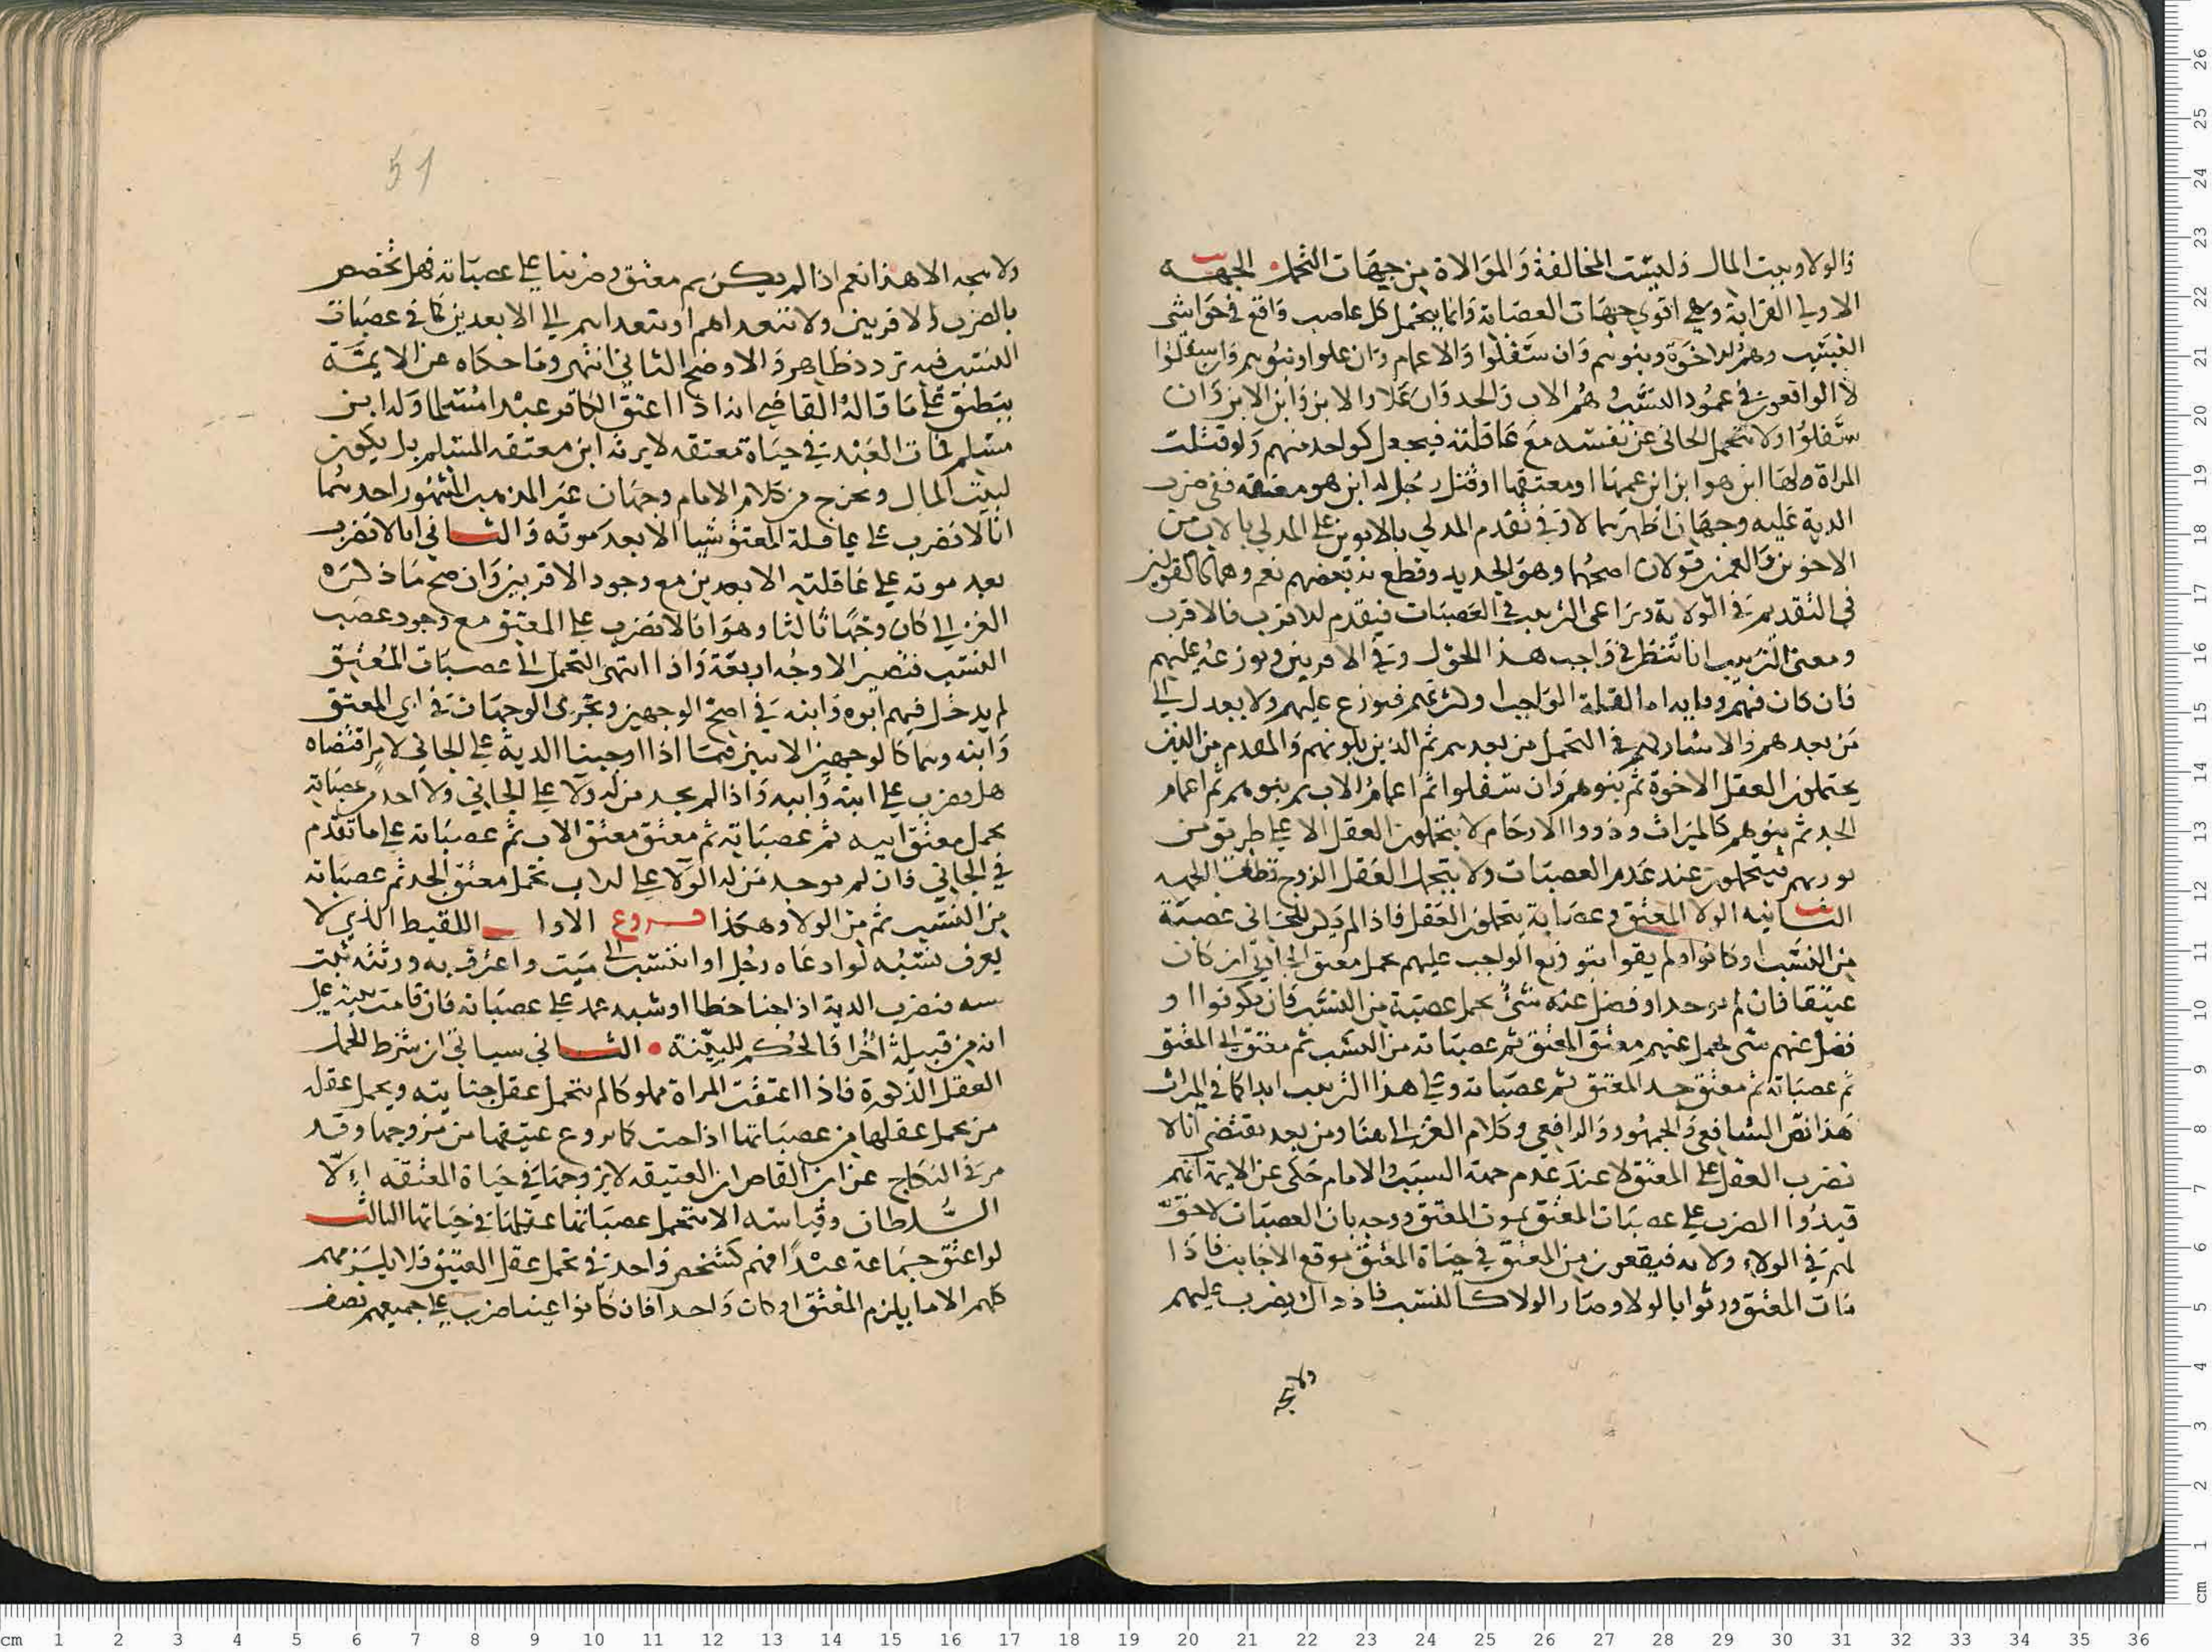 والولا وبيت المال وليست المخالفة والموالاة من جهات التحمل الجهه
الاولى القرابة وهي اقوى جهات العصبات وانما يتحمل كل عاصب واقع في حواشي
النسب وهم الاخوة وبنوهم وان سفلوا والاعمام وان علوا وبنوهم وان سفلوا
لا الواقعون في عمود النسب وهم الاب والجد وان علا والابن وابن الابن وان
سفلوا ولا يتحمل الجاني عن نفسه مع عاقلته فيجعل كواحد منهم ولو قتلت
المراة ولها ابن هو ابن ابن عمها او معتقها او قتل رجل له ابن هو معتقه ففي ضرب
الدية عليه وجهان اظهرهما لا وفي تقدم المدلي بالابوين على المدلي بالاب من
الاخوين والعمين قولان اصحهما وهو الجديد وقطع به بعضهم نعم وهما كالقولين
في التقديم في الولاية ويراعى الترتيب في العصبات فيقدم الاقرب فالاقرب
ومعنى الترتيب انا ننظر في واجب هذا الحول وفي الاقربين ويوزعه عليهم
فان كان فيهم وفا به اما لقلة الواجب او لكثرتهم فيوزع عليهم ولا يعدل الى
من بعدهم والا شاركهم في التحمل من بعدهم ثم الذين يلونهم والمقدم من الذين
يحتملون العقل الاخوة ثم بنوهم وان سفلوا ثم اعمام الاب ثم بنوهم ثم اعمام
الجد ثم بنوهم كالميراث وذووا الارحام لا يتحملون العقل الا على طريق من
يورثهم فيتحملون عند عدم العصبات ولا يتحمل العقل الزوج قطعا الجهه
الثانيه الولا المعتق وعصباته يتحملون العقل فاذا لم يكن للجاني عصبة
من النسب او كانوا ولم يفوا بتوزيع الواجب عليهم يحمل معتق الجاني ان كان
عتيقا فان لم يوجد او فضل عنه شئ يحمل عصبته من النسب فان يكونوا او
فضل عنهم شي يحمل عنهم معتق المعتق ثم عصباته من النسب ثم معتق ابي المعتق
ثم عصباته ثم معتق جد المعتق ثم عصباته وعلى هذا الترتيب ابدا كما في الميراث
هذا نص الشافعي والجمهور والرافعي وكلام الغزالي هنا ومن بعد يقتضي انا لا
نضرب العقل على المعتق لا عند عدم جهة السبب والامام حكى عن الايمة انهم
قيدوا الضرب على عصبات المعتق بموت المعتق ووجه بان العصبات لا حق
لهم في الولاء ولا به فيقعون من المعتق في حياة المعتق موقع الاجانب فاذا
مات المعتق ورثوا بالولا وصار الولا كالنسب فاذ ذاك يضرب عليهم
ولا يجه
51
ولا يجه الا هذا نعم اذا لم يكن ثم معتق وضربنا على عصباته فهل تخصص
بالضرب الاقربين ولا نتعداهم او نتعداهم الى الابعدين كما في عصبات
النسب فيه تردد ظاهر والاوضح الثاني انتهى وما حكاه عن الايمة
ينطبق على ما قاله القاضي انه اذا اعتق الكافر عبدا مسلما وله ابن
مسلم فمات العبد في حياة معتقه لا يرثه ابن معتقه المسلم بل يكون
لبيت المال ويخرج من كلام الامام وجهان غير المذهب المشهور احدهما
انا لا نضرب على عاقلة المعتق شيا الا بعد موته والثاني انا لا نضرب
بعد موته على عاقلته الابعدين مع وجود الاقربين وان صح ما ذكره
الغزالي كان وجها ثالثا وهو انا لا نضرب على المعتق مع وجود عصب
النسب فتصير الاوجه اربعة واذا انتهى التحمل الى عصبات المعتق
لم يدخل فيهم ابوه وابنه في اصح الوجهين وتجرى الوجهان في ابي المعتق
وابنه وهما كالوجهين الاتيين فيما اذا اوجبنا الدية على الجاني لامر اقتضاه
هل يضرب على ابنه وابيه واذا لم يجد من له ولآ على الجاني ولا احد من عصباته
يحمل معتق ابيه ثم عصباته ثم معتق معتق الاب ثم عصباته على ما تقدم
في الجاني فان لم يوجد من له الولآ على الاب تحمل معتق الجد ثم عصباته
من النسب ثم من الولا وهكذا فروع الاول اللقيط الذي لا
يعرف نسبه لو ادعاه رجل او انتسب الى ميت واعترف به ورثته ثبت
نسبه فنضرب الدية اذا جنا خطا او شبه عمد على عصباته فان قامت بينة على
انه من قبيلة اخرا فالحكم للبينة • الثاني سياتي ان شرط تحمل
العقل الذكورة فاذا اعتقت المراة مملوكا لم تتحمل عقل جنايته ويحمل عقله
من يحمل عقلها من عصباتها اذا جنت كما يزوج عتيقها من يزوجها وقد
مر في النكاح عن ابن القاص ان العتيقه لا يزوجها في حياة المعتقه الا
السلطان وقياسه الا يتحمل عصباتها عقلها في حياتها الثالث
لو اعتق جماعة عبدا فهم كشخص واحد في تحمل عقل العتيق فلا يلزمهم
كلهم الا ما يلزم المعتق لو كان واحدا فان كانوا اغنيا ضرب على جميعهم نصف